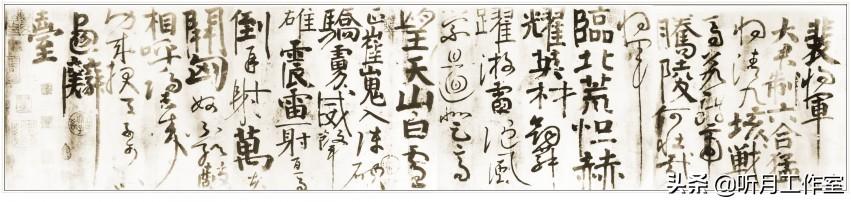 裴將軍
大君制六合猛
將清九垓戰
馬若龍虎
騰陵何壯哉
將軍
臨北荒烜赫
耀英材劍舞
躍游電隨風
縈且迴登高
望天山白雲
正崔嵬入陣破
驕虜威聲
雄震雷一射百馬
倒再射萬夫
開匈奴不敢敵
相呼歸去來
功成報天子可
以畫麟
臺
头条 @听月工作室